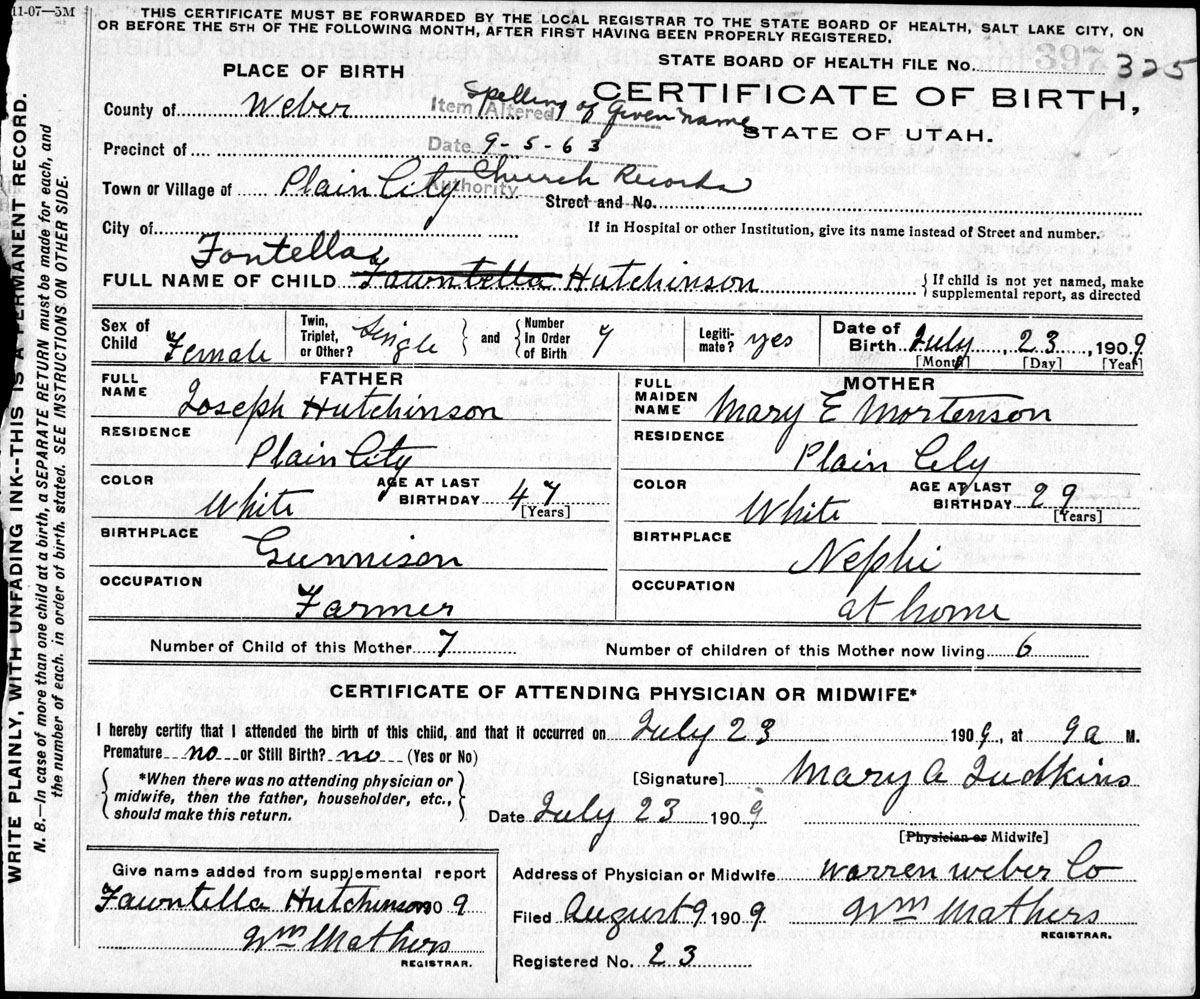 11-07—3M
THIS CERTIFICATE MUST BE FORWARDED BY THE LOCAL REGISTRAR TO THE STATE BOARD OF HEALTH, SALT LAKE CITY, ON
OR BEFORE THE 5TH OF THE FOLLOWING MONTH, AFTER FIRST HAVING BEEN PROPERLY REGISTERED.
STATE BOARD OF HEALTH FILE No. 397 325
PLACE OF BIRTH
CERTIFICATE OF BIRTH,
STATE OF UTAH.
County of Weber
Item Altered Spelling of Given name
Precinct of
Date 9-5-63
Town or Village of Plain City
Authority Church Records
Street and No.
City of
If in Hospital or other Institution, give its name instead of Street and number.
Fontella
FULL NAME OF CHILD Fawntella Hutchinson
If child is not yet named, make
supplemental report, as directed
Sex of Child Female
Twin, Triplet, or Other? Single
and
Number In Order of Birth 7
Legiti- mate? yes
Date of Birth July 23, 1909
[Month] [Day] [Year]
FATHER
FULL NAME Joseph Hutchinson
RESIDENCE
Plain City
COLOR White
AGE AT LAST BIRTHDAY 47
[Years]
BIRTHPLACE
Gunnison
OCCUPATION
Farmer
MOTHER
FULL MAIDEN NAME Mary E Mortenson
RESIDENCE
Plain City
COLOR White
AGE AT LAST BIRTHDAY 29
[Years]
BIRTHPLACE
Nephi
OCCUPATION
at home
Number of Child of this Mother 7
Number of children of this Mother now living 6
CERTIFICATE OF ATTENDING PHYSICIAN OR MIDWIFE*
I hereby certify that I attended the birth of this child, and that it occurred on July 23 1909, at 9a M.
Premature no or Still Birth? no (Yes or No)
*When there was no attending physician or
midwife, then the father, householder, etc.,
should make this return.
[Signature] Mary A Judkins
Date July 23 1909
[Physician or Midwife]
Give name added from supplemental report
Fawntella Hutchinson 1909
Wm Mathers
REGISTRAR.
Address of Physician or Midwife Warren Weber Co
Filed August 9 1909 Wm Mathers
REGISTRAR.
Registered No. 23
WRITE PLAINLY, WITH UNFADING INK--THIS IS A PERMANENT RECORD.
N. B.—In case of more than one child at a birth, a SEPARATE RETURN must be made for each, and
the number of each, in order of birth, stated. SEE INSTRUCTIONS ON OTHER SIDE.